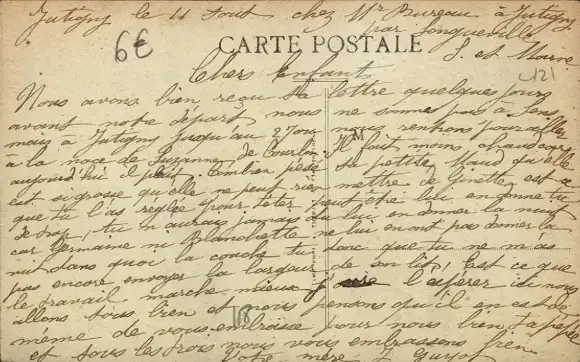 Jutigny le 11 Aout chez Mr Bureau à Jutigny
par Longueville
S. et Marne
6€
CARTE POSTALE
Chers Enfant
121
Nous avons bien reçu ta lettre quelques jours
avant notre départ nous ne somme pas à Sens
mais à Jutigny jusqu'au 27 ou nous rentrons pour aller
à la noce de Suzanne de Courlon Il fait moins chaud car
aujourd'hui il pleut. Combien pèse ta petite Maud qu'elle
est si grosse qu'elle ne peut rien mettre de Ginette est ce
que tu l'as réglée pour têter peut être lui en donne tu
de trop, tu n'aurais jamais du lui en donner la nuit
car Germaine ni Blanchette ne lui en ont pas donner la
nuit dans quoi la couche tu donc que tu ne m'as
pas encore envoyer la largeur de son lit? Est ce que
le travail marche mieux l'espérer ici nous
allons tous bien et nous pensons qu'il en est de
même de vous embrasse pour nous bien ta pépée
et tous les trois nous vous embrassons bien
Votre mère J Guyot
M
118